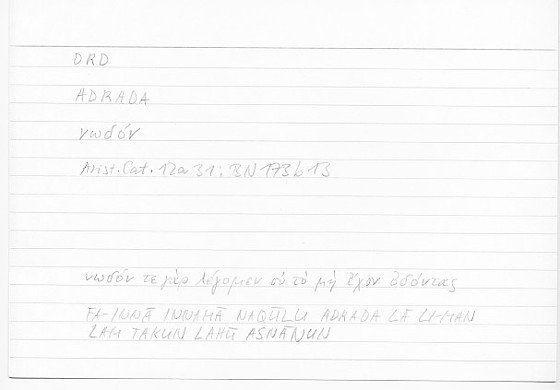 DRD
ADRADA
νωδόν
Arist. Cat. 12a 31 : BN 173b 13
νωδόν τε γὰρ λέγομεν οὐ τὸ μὴ ἔχον ὀδόντας
FA-INNĀ INNAMĀ NAQŪLU ADRADA LĀ LI-MAN
LAM TAKUN LAHŪ ASNĀNUN